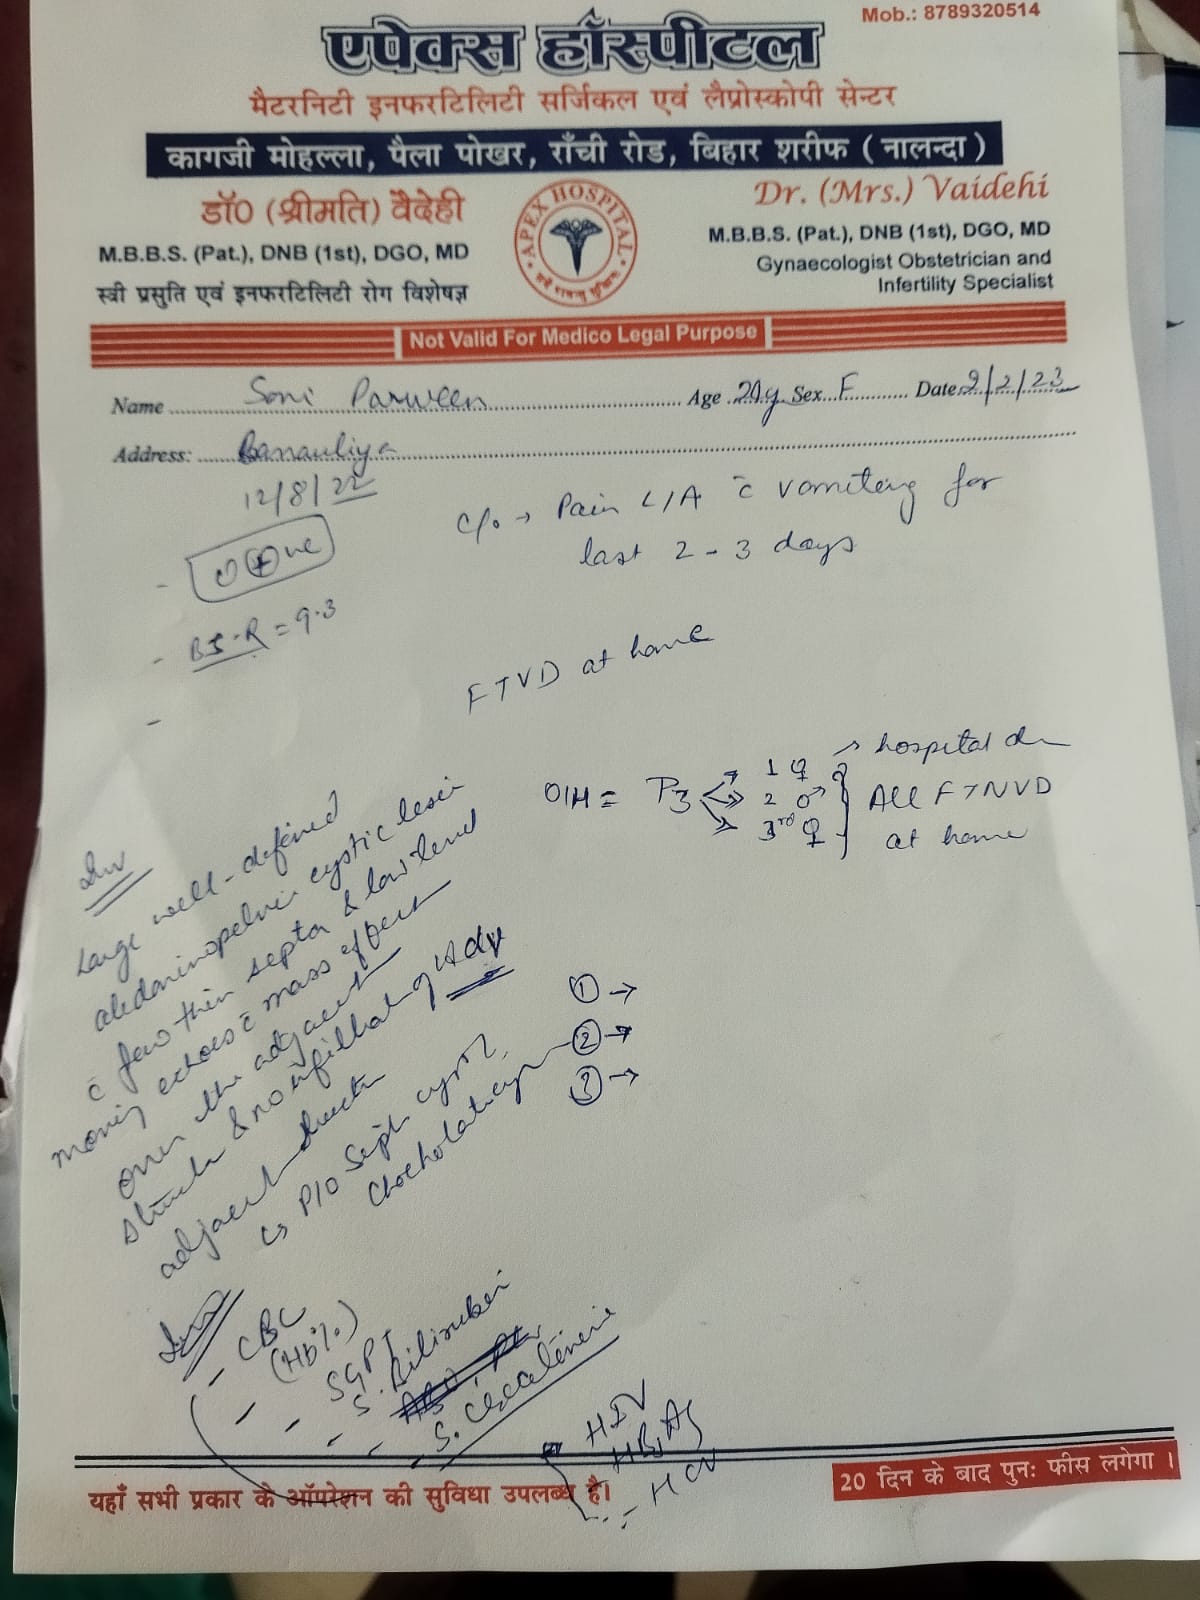 Mob.: 8789320514
एपेक्स हॉस्पीटल
मैटरनिटी इनफरटिलिटी सर्जिकल एवं लैप्रोस्कोपी सेन्टर
कागजी मोहल्ला, पैला पोखर, राँची रोड, बिहार शरीफ ( नालन्दा )
डॉ0 (श्रीमति) वैदेही
M.B.B.S. (Pat.), DNB (1st), DGO, MD
स्त्री प्रसुति एवं इनफरटिलिटी रोग विशेषज्ञ
APEX HOSPITAL
Dr. (Mrs.) Vaidehi
M.B.B.S. (Pat.), DNB (1st), DGO, MD
Gynaecologist Obstetrician and
Infertility Specialist
Not Valid For Medico Legal Purpose
Name Soni Parween Age Sex F Date 2/2/23
Address: Banauliya
12/8/22
C/o → Pain L/A c̄ vomiting for
last 2-3 days
O⊕ve
= 9.3
FTVD at home
O/H = P3
1 ♀
2 ♂
3rd ♀
→ hospital
All FTNVD
at home
Inv
Large well-defined
abdominopelvic cystic lesion
c̄ few thin septa & low level
moving echoes c̄ mass effect
over the adjacent
& no of
adjacent
Adv
① →
② →
③ →
P/O cyst,
Inv
- CBC
(Hb%)
- SGPT
- S. Bilirubin
- S. Creatinine
- HIV
- HBsAg
- HCV
यहाँ सभी प्रकार के ऑपरेशन की सुविधा उपलब्ध है।
20 दिन के बाद पुनः फीस लगेगा ।